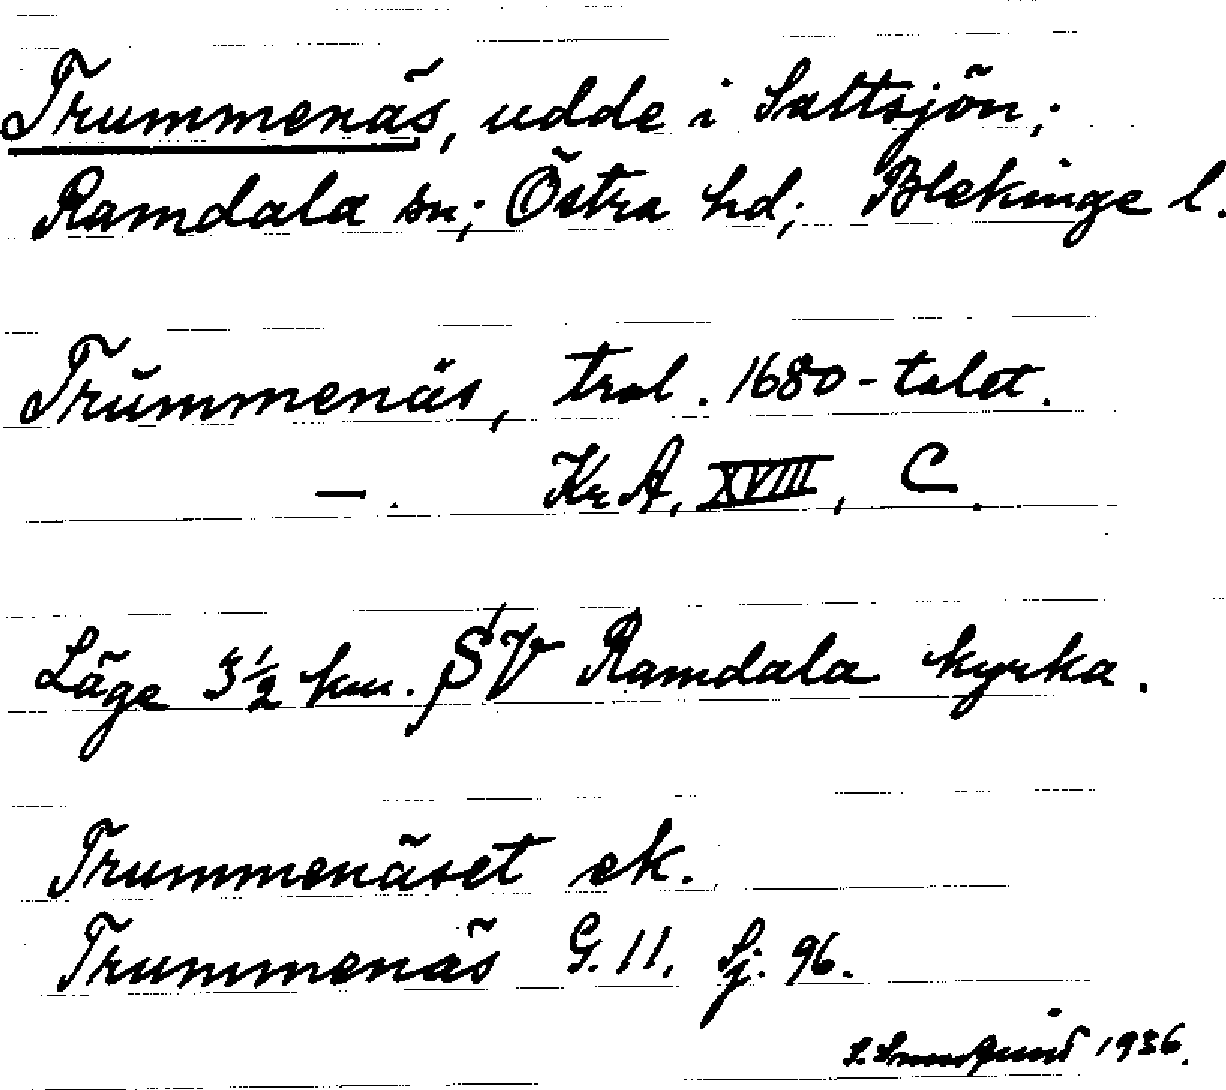 Trummenäs, udde i Saltsjön;
Ramdala sn; Östra hd; Blekinge l.
Trŭmmenäs, trol. 1680-talet.
—. KrA, XVIII, C.
Läge 3½ km. SV Ramdala kyrka.
Trummenäset ek.
Trummenäs G. 11. Sj. 96.
1936.